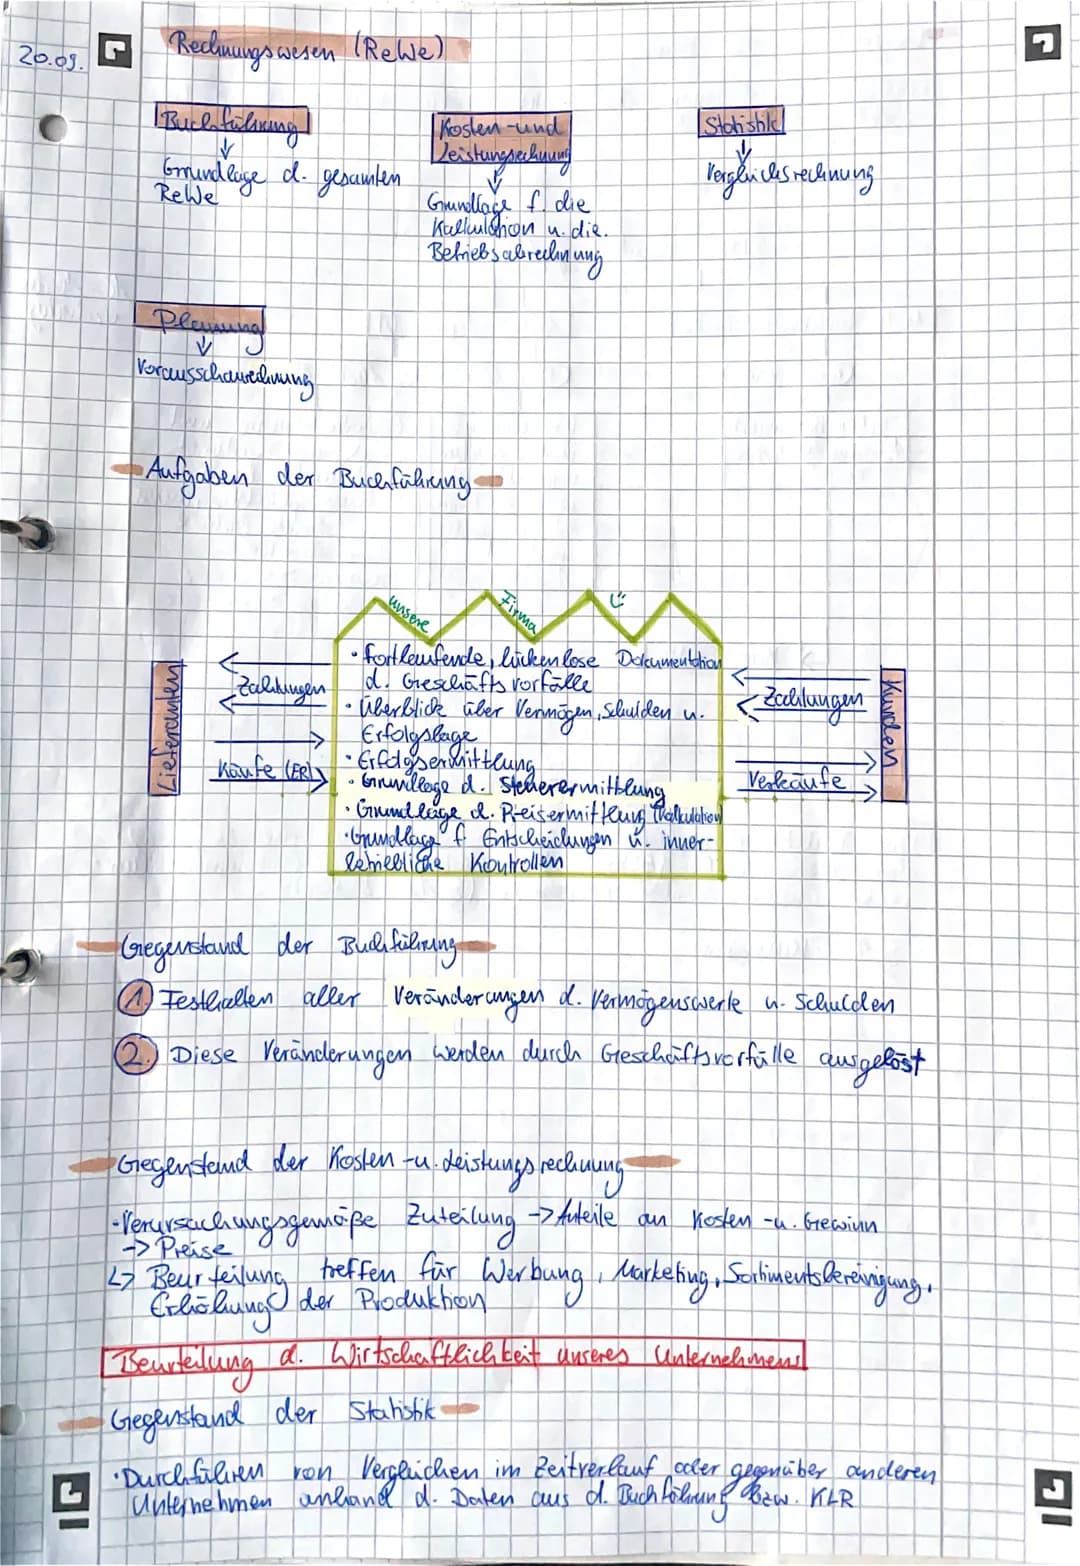 20.09.
Rechnungswesen (ReWe)
Buchführung
Grundlage d. gesamten
ReWe
Kosten-und
Leistungsrechnung
Grundlage f. die
Kalkulation u. die.
Betriebsabrechnung
Statistik
Vergleichsrechnung
Planung
Vorausschaurechnung
Aufgaben der Buchführung
unsere Firma
Lieferanten
Zahlungen
Käufe (ER)
• fortlaufende, lückenlose Dokumentation
d. Geschäftsvorfälle
• Überblick über Vermögen, Schulden u.
Erfolgslage
• Erfolgsermittlung
• Grundlage d. Steuerermittlung
• Grundlage d. Preisermittlung (Kalkulation)
• Grundlage f. Entscheidungen u. inner-
betriebliche Kontrollen
Zahlungen
Verkäufe
Kunden
Gegenstand der Buchführung
1. Festhalten aller Veränderungen d. Vermögenswerte u. Schulden
2. Diese Veränderungen werden durch Geschäftsvorfälle ausgelöst
Gegenstand der Kosten-u. Leistungsrechnung
• Verursachungsgemäße Zuteilung -> Anteile an Kosten-u. Gewinn
-> Preise
↳ Beurteilung treffen für Werbung, Marketing, Sortimentsbereinigung,
Erhöhung der Produktion
Beurteilung d. Wirtschaftlichkeit unseres Unternehmens!
Gegenstand der Statistik
• Durchführen von Vergleichen im Zeitverlauf oder gegenüber anderen
Unternehmen anhand d. Daten aus d. Buchführung bzw. KLR